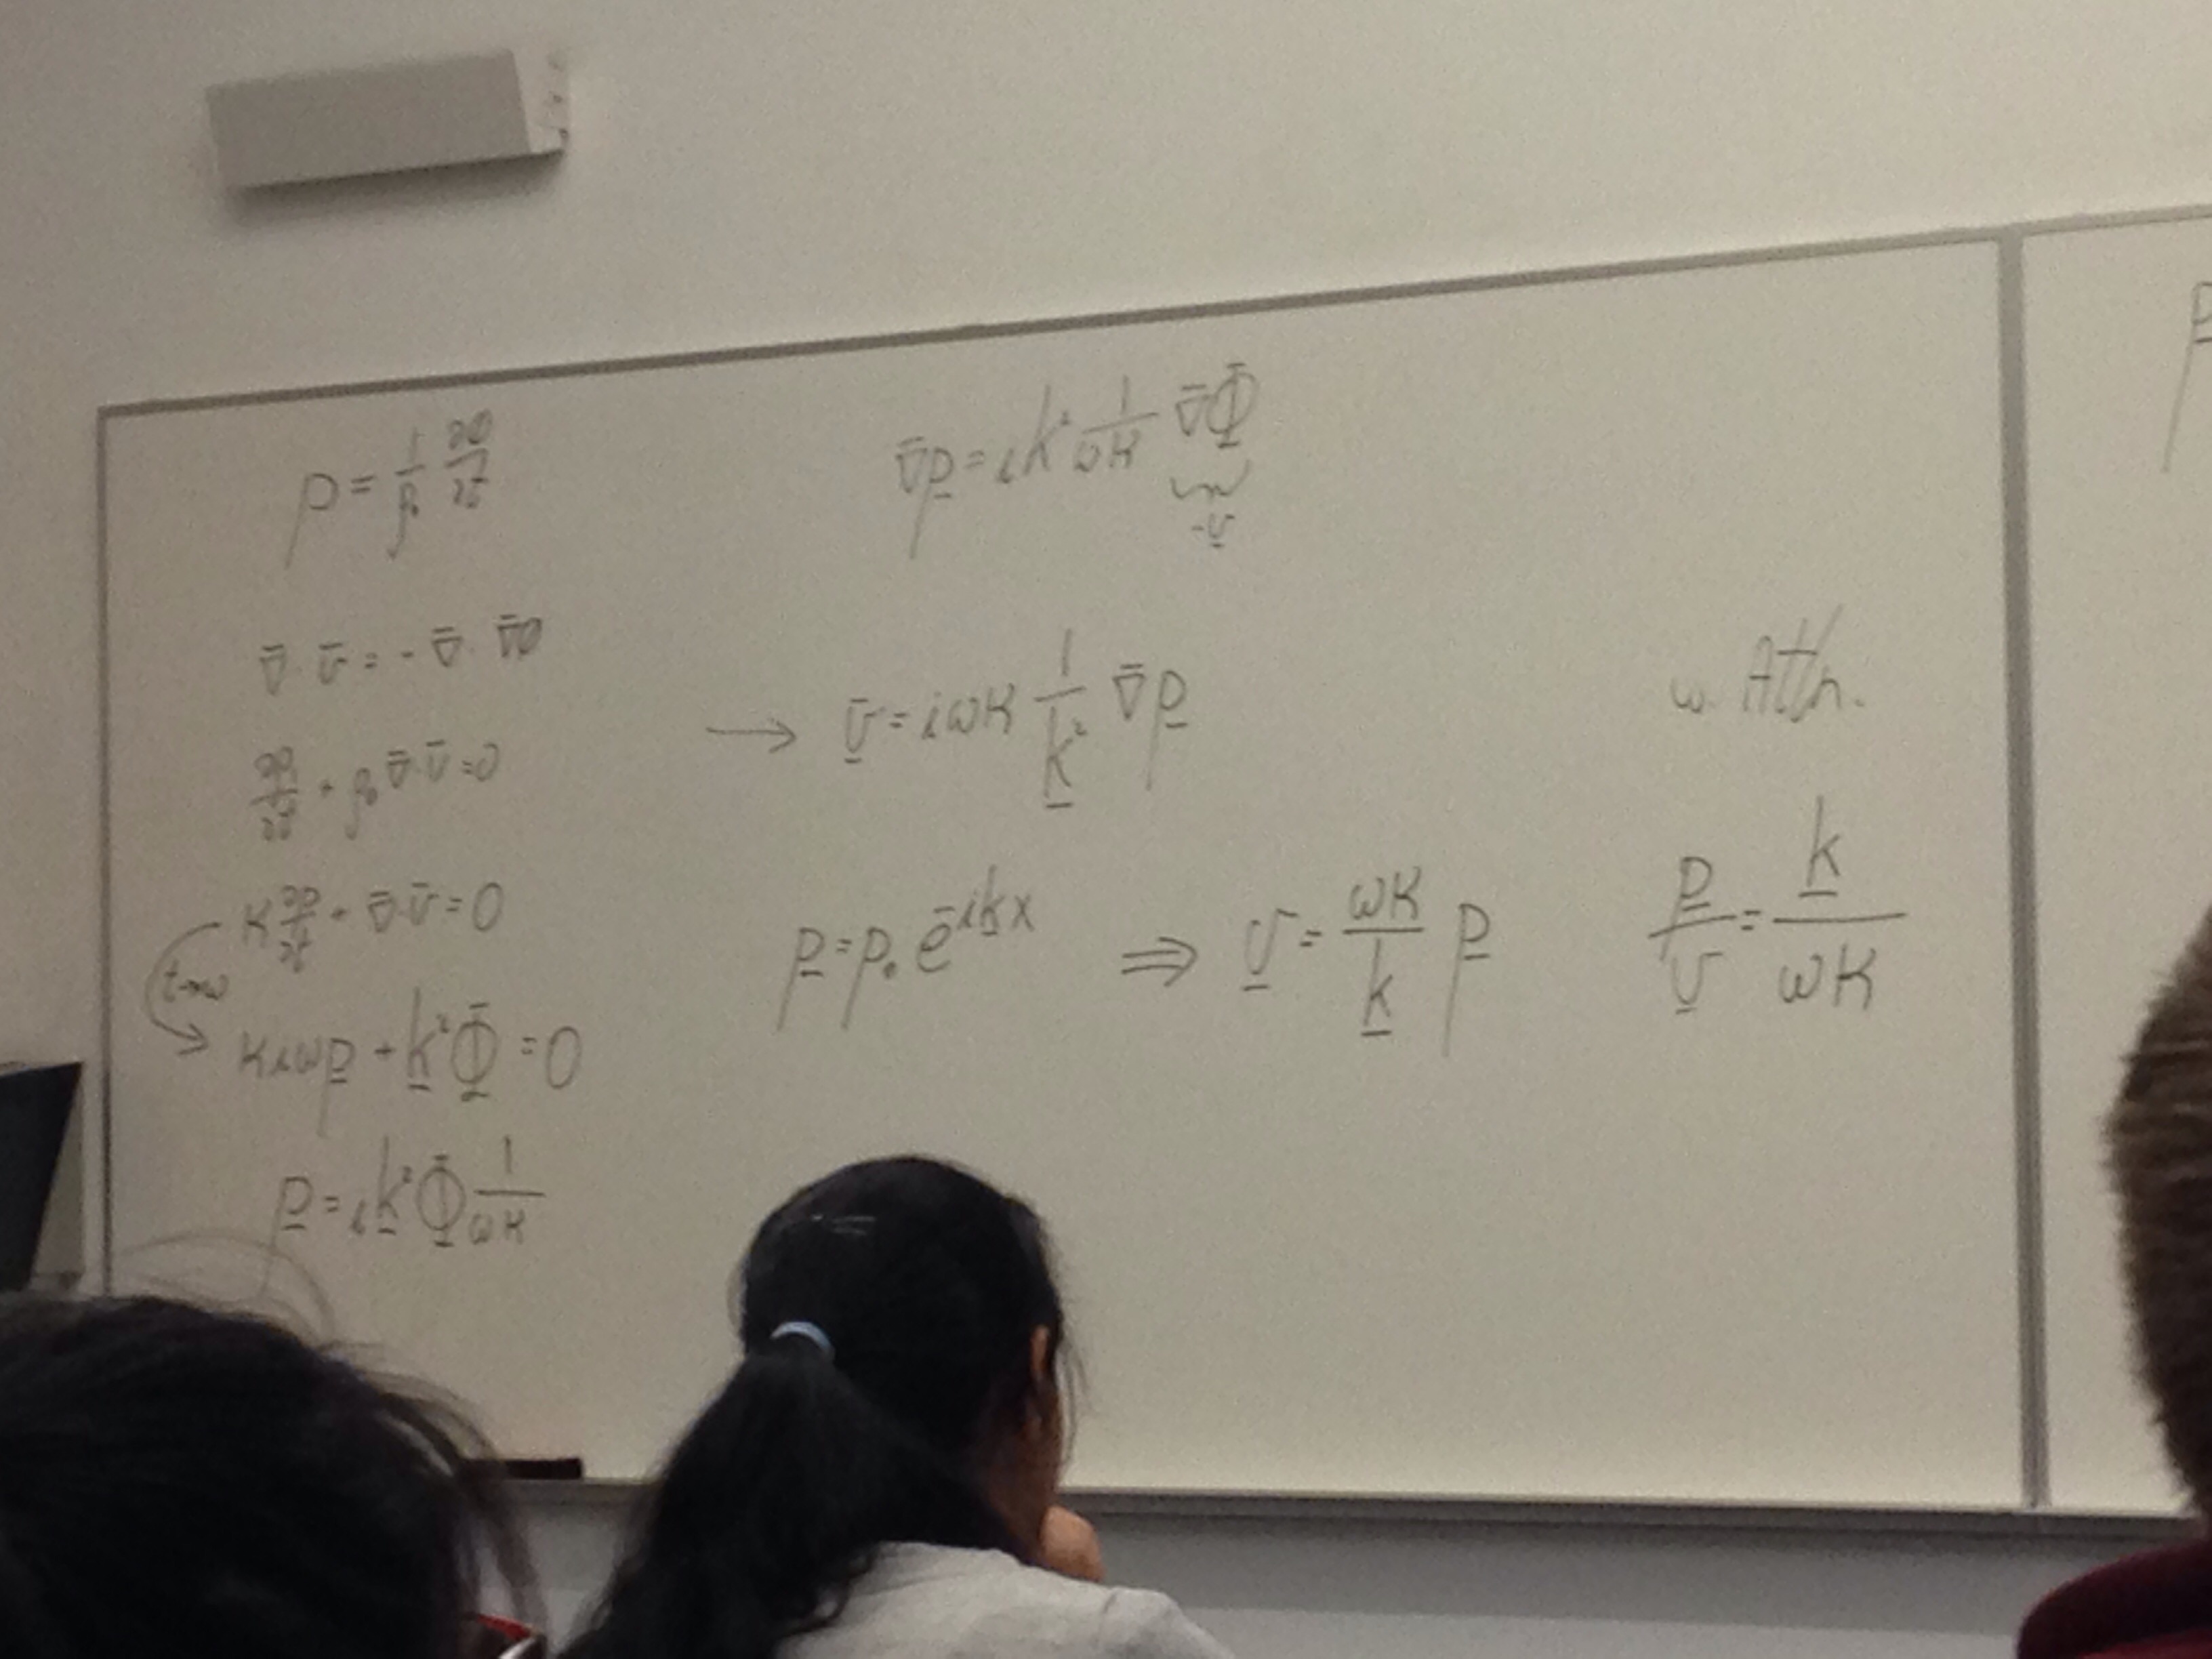 p = 1/ρ₀ ∂Φ/∂t
∇̄·v̄ = -∇̄·∇̄Φ
∂ρ/∂t + ρ₀ ∇̄·v̄ = 0
K ∂p/∂t + ∇̄·v̄ = 0
t→ω
K i ω p̲ + k̲² Φ̲ = 0
p̲ = i k̲² Φ̲ 1/ωK
∇̄p̲ = i k² 1/ωK ∇̄Φ̲
-v̲
→ v̲̄ = i ω K 1/k̲² ∇̄p̲
p̲ = p₀ e^{-ik̲x} ⇒ v̲ = ωK/k̲ p̲
w. Attn.
p̲/v̲ = k̲/ωK
p̲